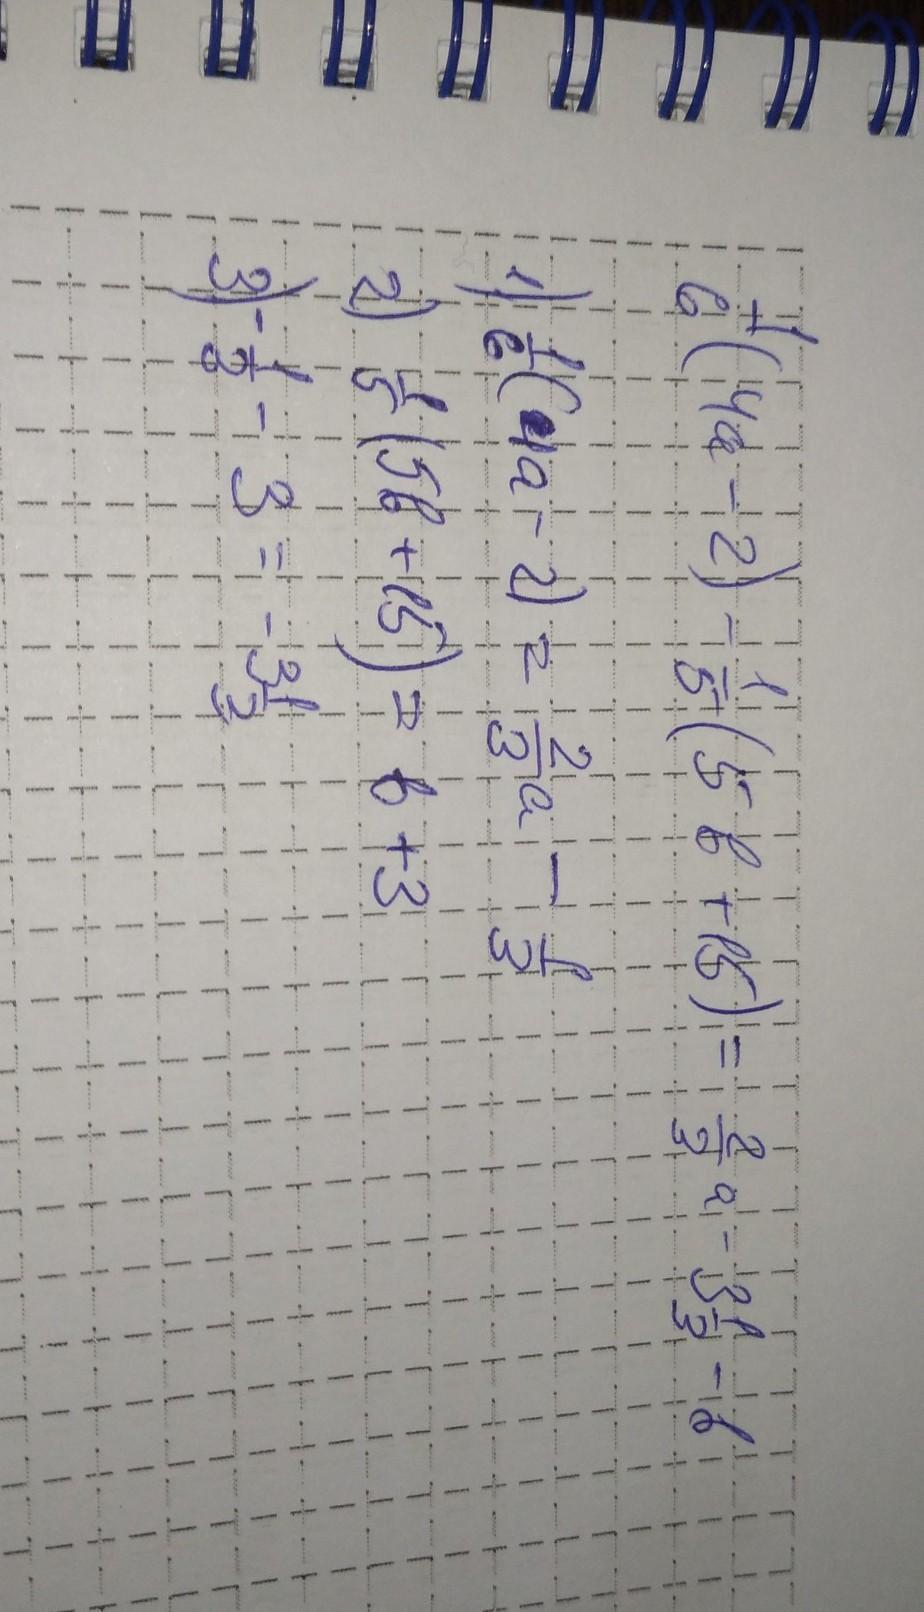 1/6 (4a - 2) - 1/5 (5b + 15) = 2/3 a - 3 1/3 - b
1) 1/6 (4a - 2) = 2/3 a - 1/3
2) 1/5 (5b + 15) = b + 3
3) - 1/3 - 3 = - 3 1/3